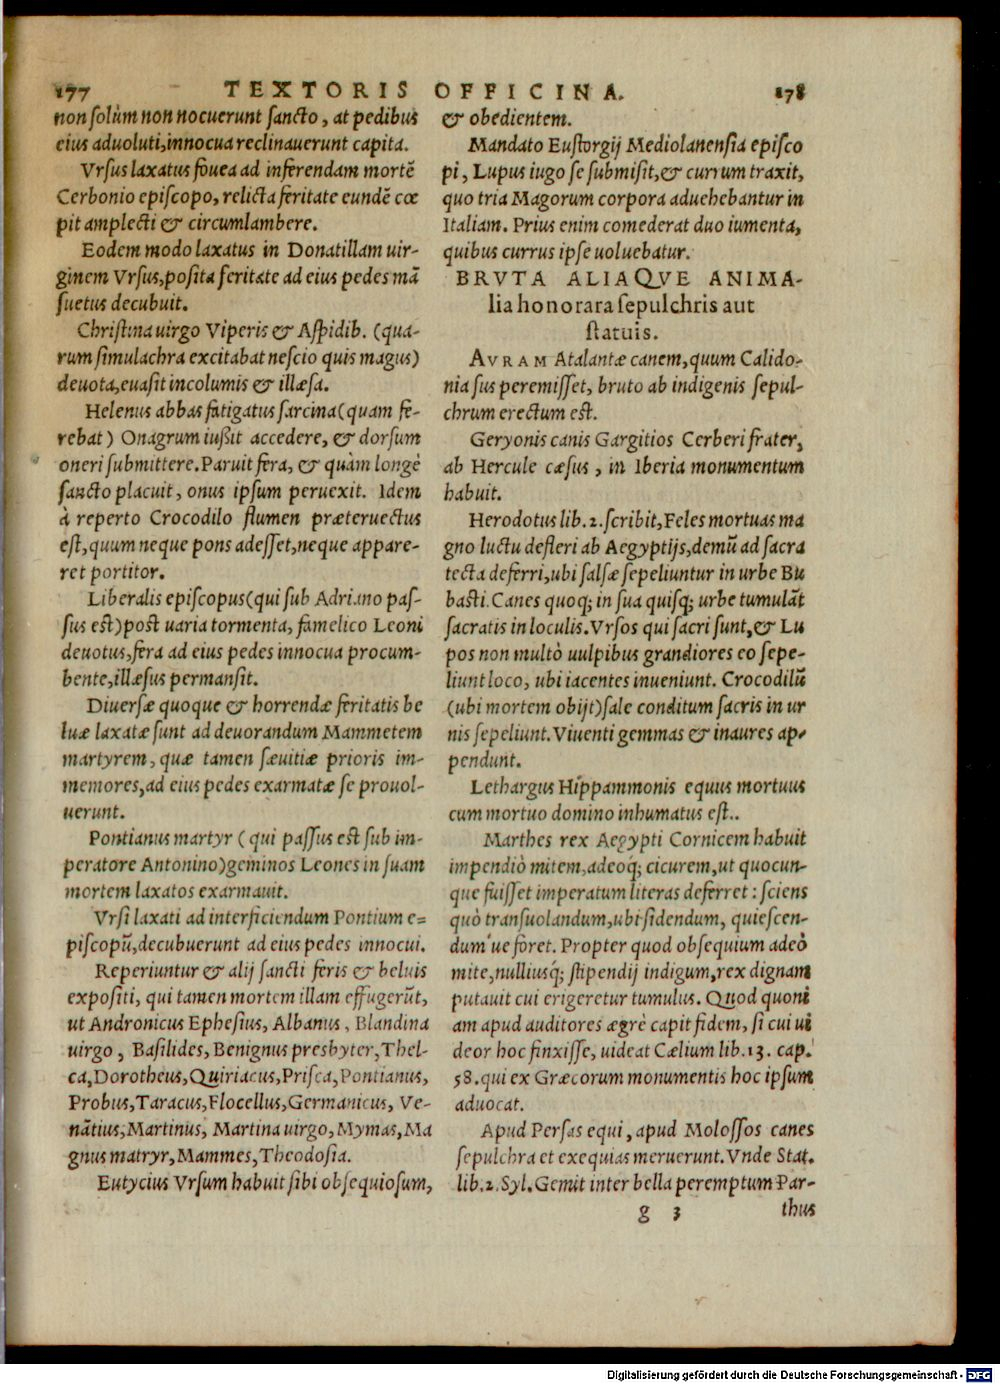 177 TEXTORIS OFFICINA. 178
non ſolùm non nocuerunt ſancto, at pedibus
eius aduoluti, innocua reclinauerunt capita.
Vrſus laxatus fouea ad inferendam mortē
Cerbonio epiſcopo, relicta feritate eundē cœ
pit amplecti & circumlambere.
Eodem modo laxatus in Donatillam uir-
ginem Vrſus, poſita feritate ad eius pedes mā
ſuetus decubuit.
Chriſtina uirgo Viperis & Aſpidib. (qua-
rum ſimulachra excitabat neſcio quis magus)
deuota, euaſit incolumis & illæſa.
Helenus abbas fatigatus ſarcina (quam fe-
rebat) Onagrum iußit accedere, & dorſum
oneri ſubmittere. Paruit fera, & quàm longè
ſancto placuit, onus ipſum peruexit. Idem
à reperto Crocodilo flumen præteruectus
eſt, quum neque pons adeſſet, neque appare-
ret portitor.
Liberalis epiſcopus (qui ſub Adriano paſ-
ſus eſt) poſt uaria tormenta, famelico Leoni
deuotus, fera ad eius pedes innocua procum-
bente, illæſus permanſit.
Diuerſæ quoque & horrendæ feritatis be
luæ laxatæ ſunt ad deuorandum Mammetem
martyrem, quæ tamen ſæuitiæ prioris im-
memores, ad eius pedes exarmatæ ſe prouol-
uerunt.
Pontianus martyr (qui paſſus eſt ſub im-
peratore Antonino) geminos Leones in ſuam
mortem laxatos exarmauit.
Vrſi laxati ad interficiendum Pontium e=
piſcopū, decubuerunt ad eius pedes innocui.
Reperiuntur & alij ſancti feris & beluis
expoſiti, qui tamen mortem illam effugerūt,
ut Andronicus Epheſius, Albanus, Blandina
uirgo, Baſilides, Benignus presbyter, Thel-
ca, Dorotheus, Quiriacus, Priſca, Pontianus,
Probus, Taracus, Flocellus, Germanicus, Ve-
nātius, Martinus, Martina uirgo, Mymas, Ma
gnus matryr, Mammes, Theodoſia.
Eutycius Vrſum habuit ſibi obſequioſum,
& obedientem.
Mandato Euſtorgij Mediolanenſia epiſco
pi, Lupus iugo ſe ſubmiſit, & currum traxit,
quo tria Magorum corpora aduehebantur in
Italiam. Prius enim comederat duo iumenta,
quibus currus ipſe uoluebatur.
BRVTA ALIAQVE ANIMA-
lia honorara ſepulchris aut
ſtatuis.
AVRAM Atalantæ canem, quum Calido-
nia ſus peremiſſet, bruto ab indigenis ſepul-
chrum erectum eſt.
Geryonis canis Gargitios Cerberi frater,
ab Hercule cæſus, in Iberia monumentum
habuit.
Herodotus lib. 2. ſcribit, Feles mortuas ma
gno luctu defleri ab Aegyptijs, demū ad ſacra
tecta deferri, ubi ſalſæ ſepeliuntur in urbe Bu
baſti. Canes quoq; in ſua quiſq; urbe tumulāt
ſacratis in loculis. Vrſos qui ſacri ſunt, & Lu
pos non multò uulpibus grandiores eo ſepe-
liunt loco, ubi iacentes inueniunt. Crocodilū
(ubi mortem obijt) ſale conditum ſacris in ur
nis ſepeliunt. Viuenti gemmas & inaures ap-
pendunt.
Lethargus Hippammonis equus mortuus
cum mortuo domino inhumatus eſt..
Marthes rex Aegypti Cornicem habuit
impendiò mitem, adeoq; cicurem, ut quocun-
que fuiſſet imperatum literas deferret: ſciens
quò tranſuolandum, ubi ſidendum, quieſcen-
dum'ue foret. Propter quod obſequium adeò
mite, nulliusq; ſtipendij indigum, rex dignam
putauit cui erigeretur tumulus. Quod quoni
am apud auditores ægrè capit fidem, ſi cui ui
deor hoc finxiſſe, uideat Cælium lib. 13. cap.
58. qui ex Græcorum monumentis hoc ipſum
aduocat.
Apud Perſas equi, apud Moloſſos canes
ſepulchra et exequias meruerunt. Vnde Stat.
lib. 2. Syl. Gemit inter bella peremptum Par-
g 3 thus
Digitalisierung gefördert durch die Deutsche Forschungsgemeinschaft - DFG